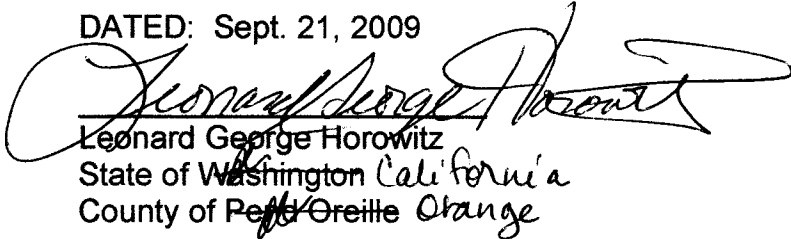 DATED: Sept. 21, 2009
Leonard George Horowitz
Leonard George Horowitz
State of Washington California
County of Pend Oreille Orange